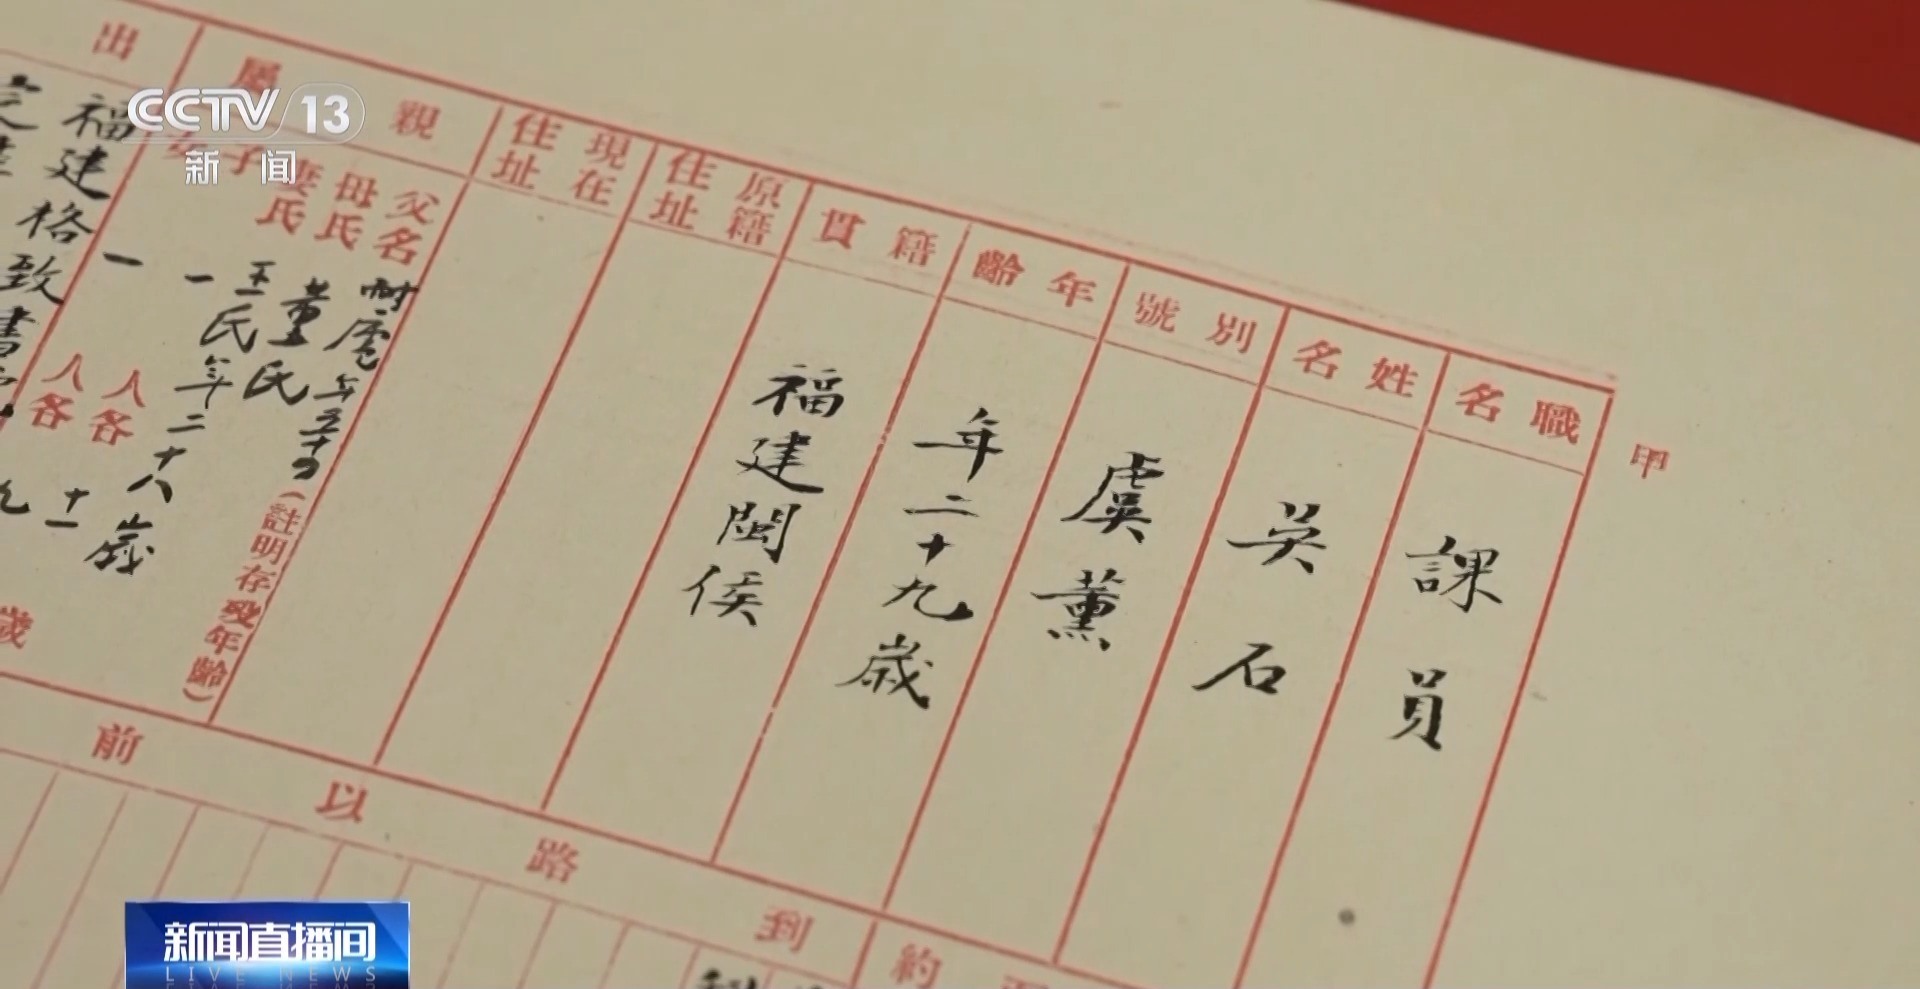 CCTV 13
新闻
甲
職名
課員
姓名
吳石
別號
虞薰
年齡
年二十九歲
籍貫
福建閩侯
原籍住址
現在住址
親屬
父名
母氏
董氏
妻氏
王氏年二十八歲
子
一人各十一
女
一人各九歲
(註明存殁年齡)
出
福建格致書
到路以前
約
新闻直播间
LIVE NEWS